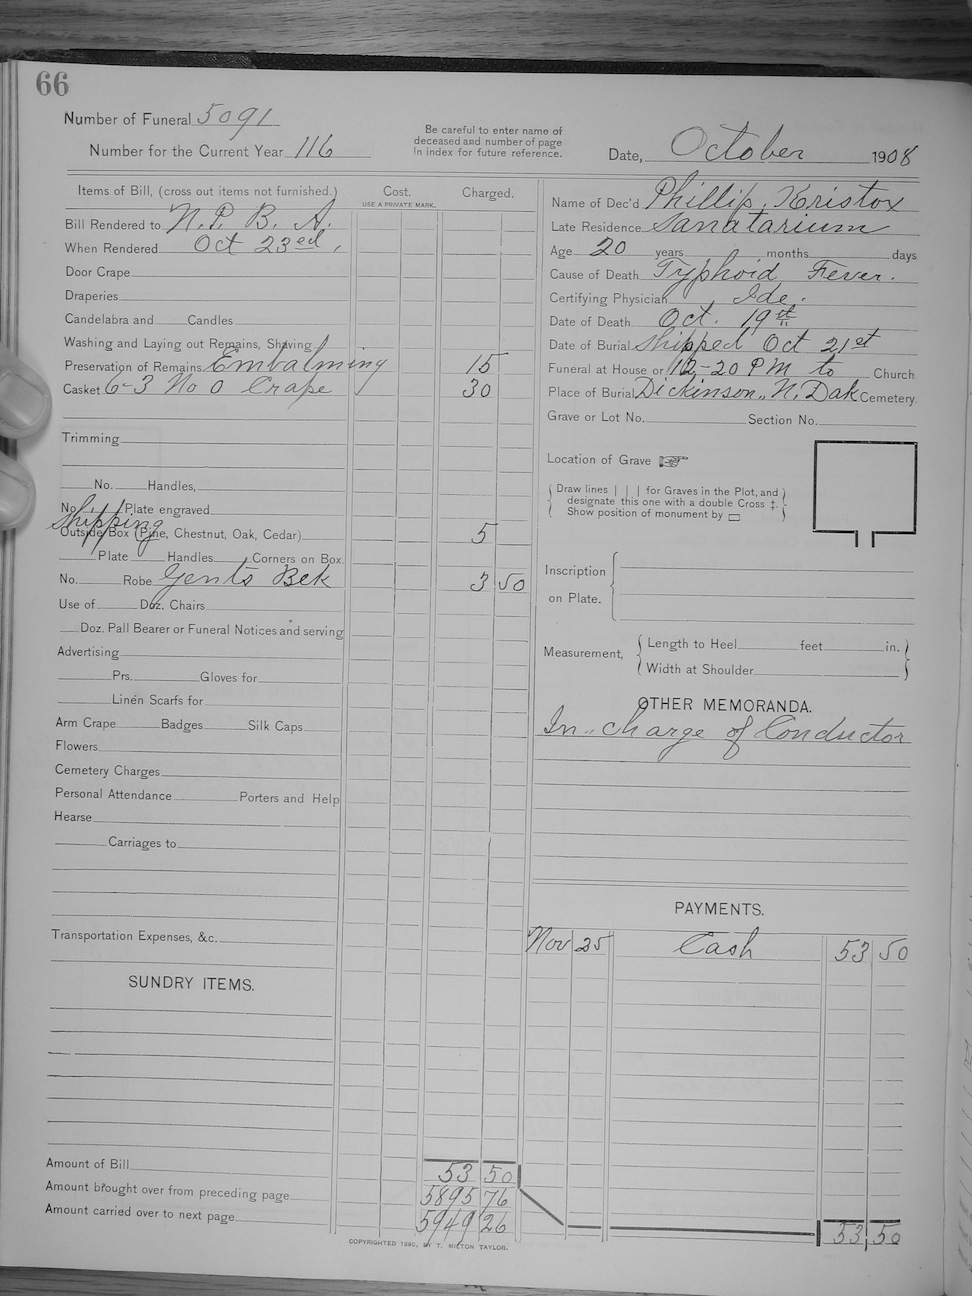 66
Number of Funeral 5091
Number for the Current Year 116
Be careful to enter name of
deceased and number of page
in index for future reference.
Date, October 1908
Items of Bill, (cross out items not furnished.)
Cost.
USE A PRIVATE MARK.
Charged.
Bill Rendered to N. P. B. A.
When Rendered Oct 23ed,
Door Crape
Draperies
Candelabra and Candles
Washing and Laying out Remains, Shaving
Preservation of Remains Embalming 15
Casket 6-3 No 0 Crape 30
Trimming
No. Handles,
No. Plate engraved
Shipping
Outside Box (Pine, Chestnut, Oak, Cedar) 5
Plate Handles Corners on Box
No. Robe Gents Bck 3 50
Use of Doz. Chairs
Doz. Pall Bearer or Funeral Notices and serving
Advertising
Prs. Gloves for
Linen Scarfs for
Arm Crape Badges Silk Caps
Flowers
Cemetery Charges
Personal Attendance Porters and Help
Hearse
Carriages to
Transportation Expenses, &c.
SUNDRY ITEMS.
Amount of Bill 53 50
Amount brought over from preceding page 5895 76
Amount carried over to next page 5949 26
COPYRIGHTED 1890, BY T. MILTON TAYLOR.
Name of Dec'd Phillip Kristox
Late Residence Sanatarium
Age 20 years months days
Cause of Death Typhoid Fever.
Certifying Physician Ide.
Date of Death Oct. 19th
Date of Burial Shipped Oct 21st
Funeral at House or 12-20 PM to Church
Place of Burial Dickinson, N. Dak Cemetery.
Grave or Lot No. Section No.
Location of Grave
Draw lines | | | for Graves in the Plot, and
designate this one with a double Cross ‡.
Show position of monument by
Inscription
on Plate.
Measurement,
Length to Heel feet in.
Width at Shoulder
OTHER MEMORANDA.
In charge of Conductor
PAYMENTS.
Nov 25 Cash 53 50
53 50